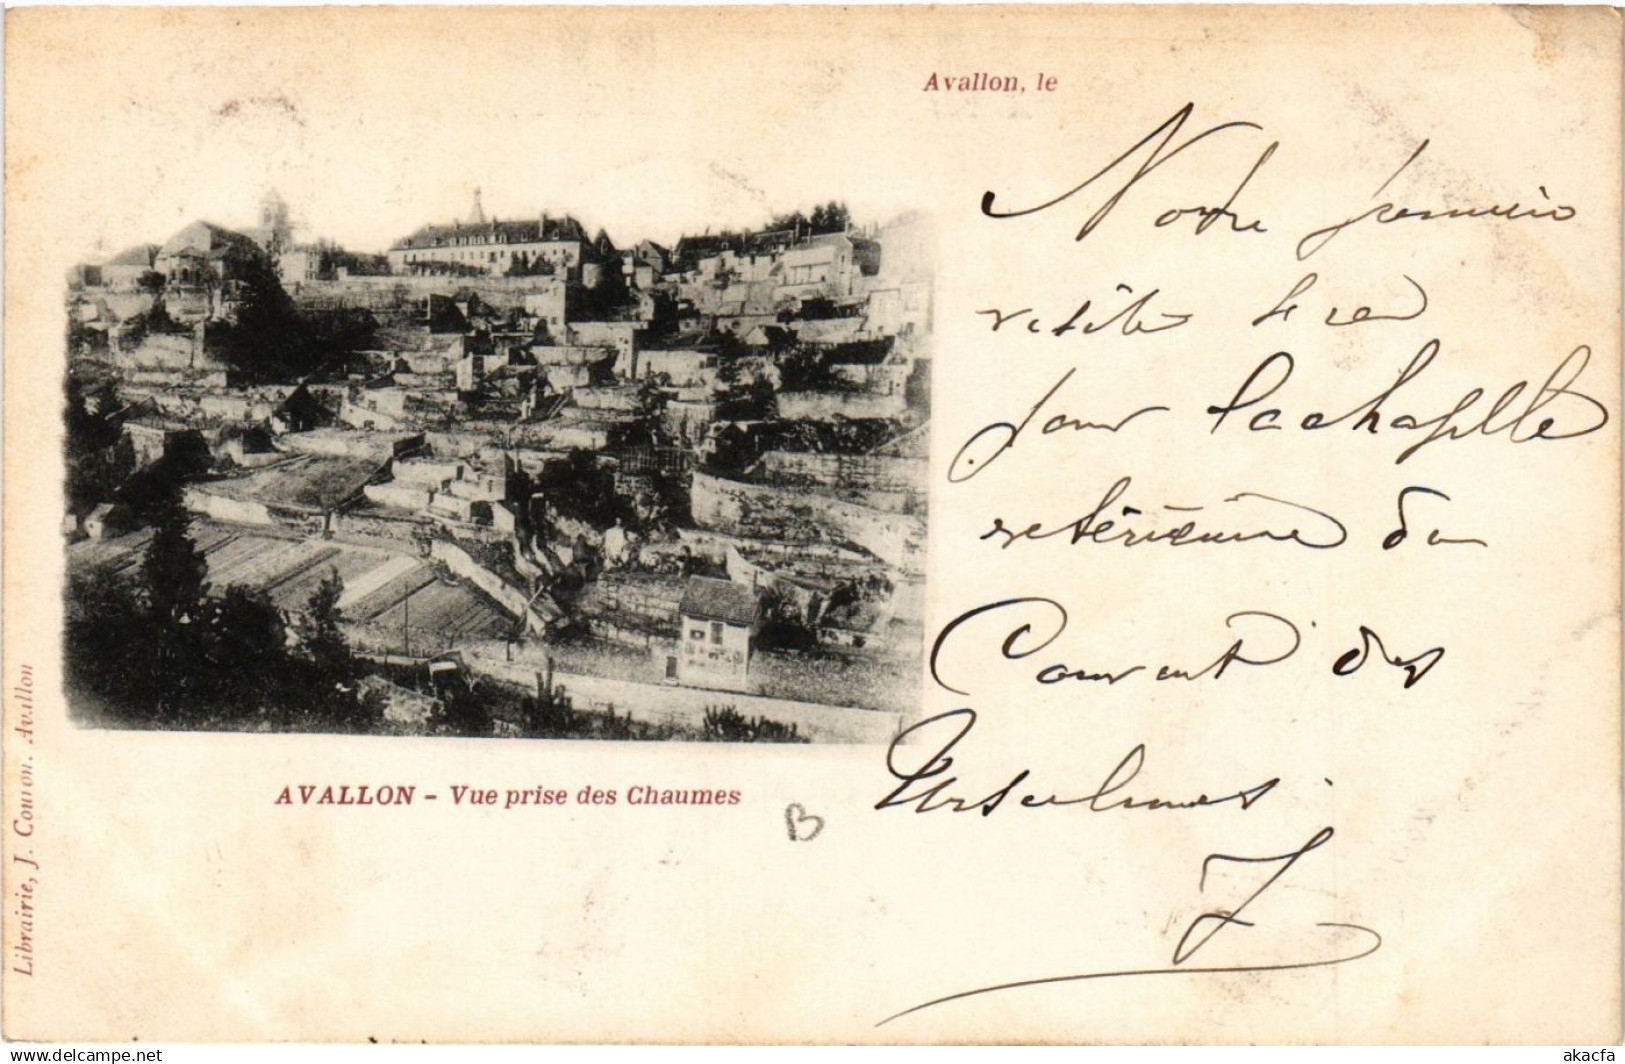 Avallon, le
Notre premiere
visite sera
pour la chapelle
extérieure du
Couvent des
Ursulines
J
AVALLON - Vue prise des Chaumes
B
Librairie, J. Couron. Avallon
delcampe.net
akacfa